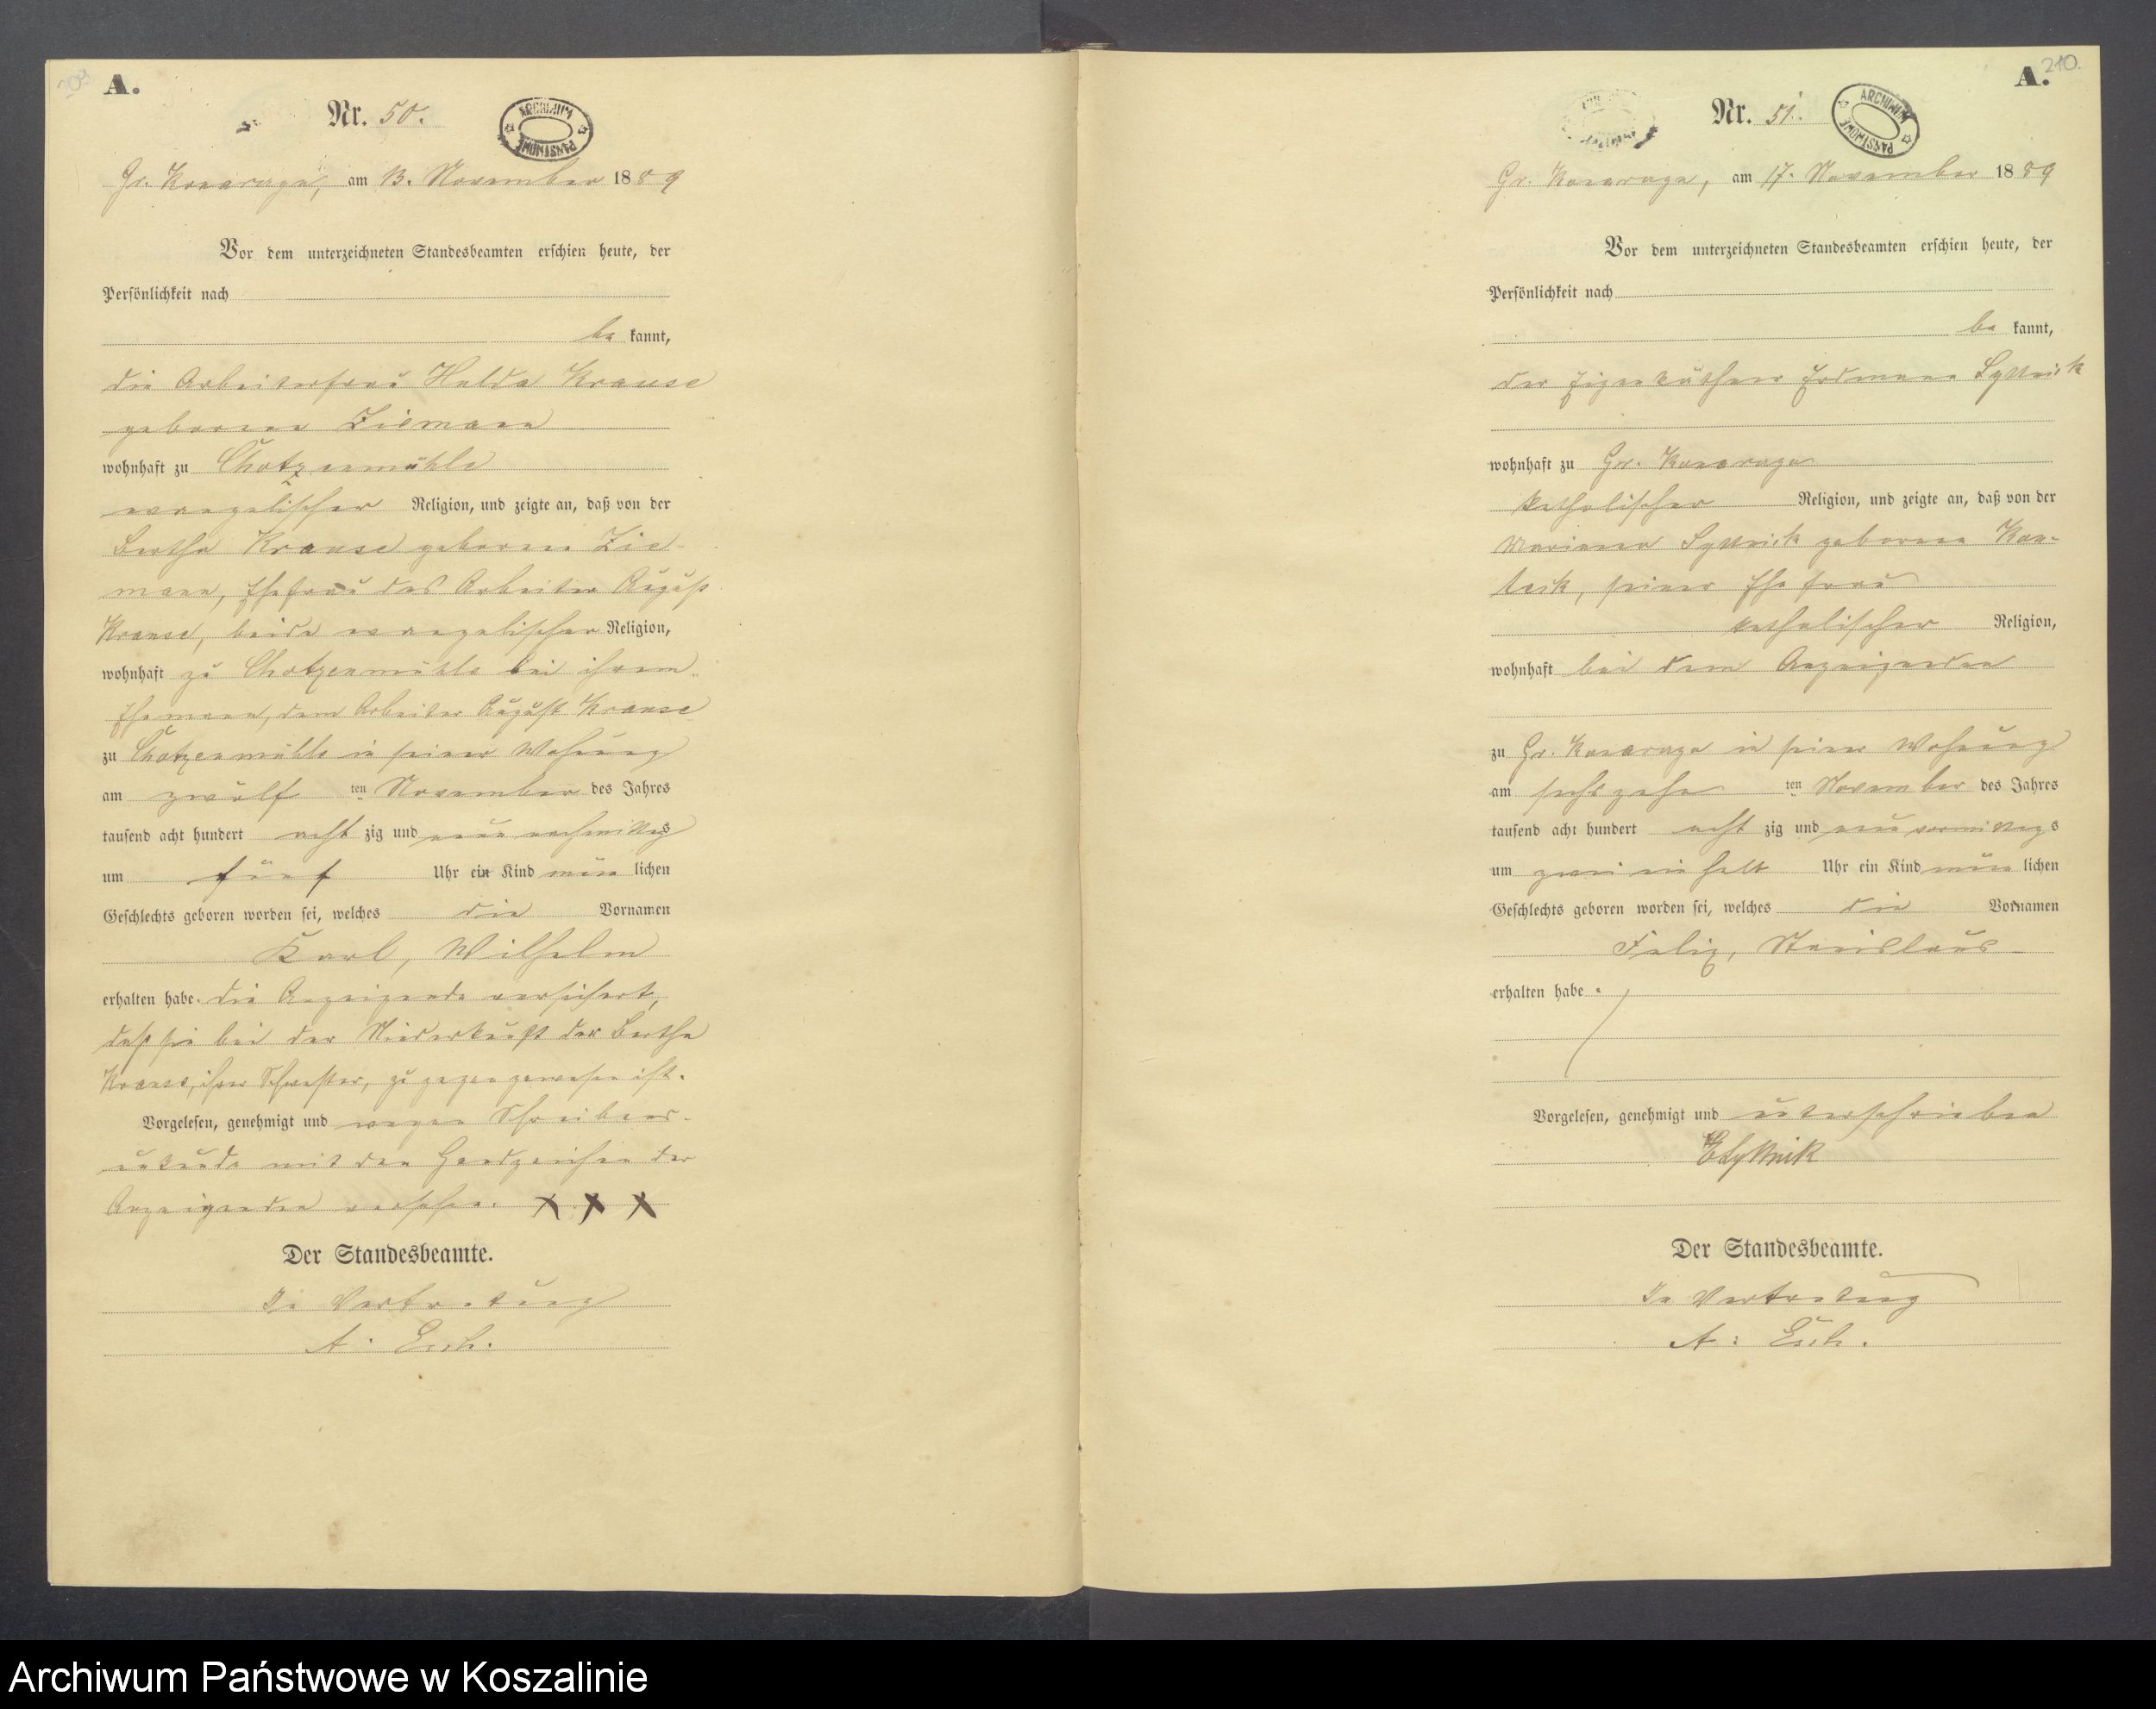 209
A.
Nr. 50.
ARCHIWUM PAŃSTWOWE
Gr. Konarzyn, am 13. November 1889
Vor dem unterzeichneten Standesbeamten erschien heute, der
Persönlichkeit nach
be kannt,
die Arbeiterfrau Hulda Krause
geborene Ziemann
wohnhaft zu Chotzenmühle
evangelischer Religion, und zeigte an, daß von der
Bertha Krause geborene Zie-
mann, Ehefrau des Arbeiter August
Krause, beide evangelischer Religion,
wohnhaft zu Chotzenmühle bei ihrem
Ehemann, dem Arbeiter August Krause
zu Chotzenmühle in seiner Wohnung
am zwölf ten November des Jahres
tausend acht hundert acht zig und neun nachmittags
um fünf Uhr ein Kind män lichen
Geschlechts geboren worden sei, welches die Vornamen
Karl, Wilhelm
erhalten habe. Die Anzeigende versichert,
daß sie bei der Niederkunft der Bertha
Krause, ihrer Schwester, zugegen gewesen ist.
Vorgelesen, genehmigt und wegen Schreibens-
unkunde mit den Handzeichen der
Anzeigenden versehen. XXX
Der Standesbeamte.
In Vertretung
A. Esch.
210.
A.
Nr. 51.
ARCHIWUM PAŃSTWOWE
Gr. Konarzyn, am 17. November 1889
Vor dem unterzeichneten Standesbeamten erschien heute, der
Persönlichkeit nach
be kannt,
der Eigenkäthner Erdmann
wohnhaft zu Gr. Konarzyn
katholischer Religion, und zeigte an, daß von der
geborene
seiner Ehefrau
katholischer Religion,
wohnhaft bei dem Anzeigenden
zu Gr. Konarzyn in seiner Wohnung
am sechszehn ten November des Jahres
tausend acht hundert acht zig und neun vormittags
um zwei ein halb Uhr ein Kind män lichen
Geschlechts geboren worden sei, welches die Vornamen
Felix, Stanislaus
erhalten habe.
Vorgelesen, genehmigt und unterschrieben
Der Standesbeamte.
In Vertretung
A. Esch.
Archiwum Państwowe w Koszalinie